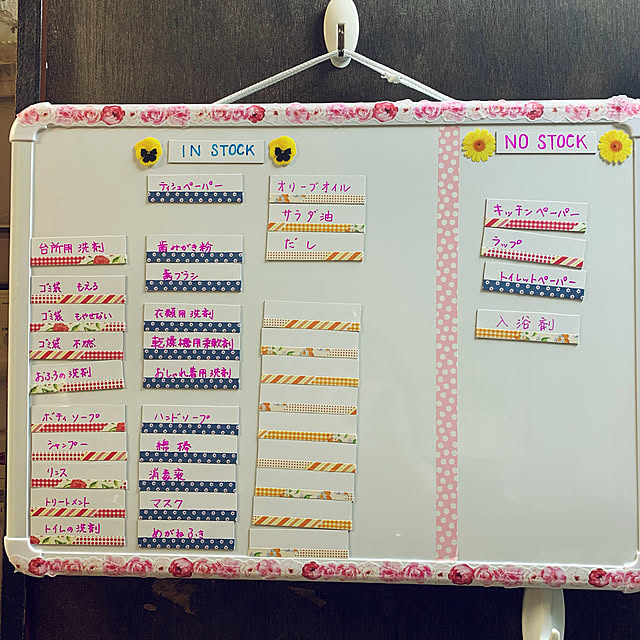 IN STOCK
台所用洗剤
ゴミ袋 もえる
ゴミ袋 もやせない
ゴミ袋 不燃
おふろの洗剤
ボディソープ
シャンプー
リンス
トリートメント
トイレの洗剤
ティシュペーパー
歯みがき粉
歯ブラシ
衣類用洗剤
乾燥機用柔軟剤
おしゃれ着用洗剤
ハンドソープ
綿棒
消毒液
マスク
めがねふき
オリーブオイル
サラダ油
だし
NO STOCK
キッチンペーパー
ラップ
トイレットペーパー
入浴剤